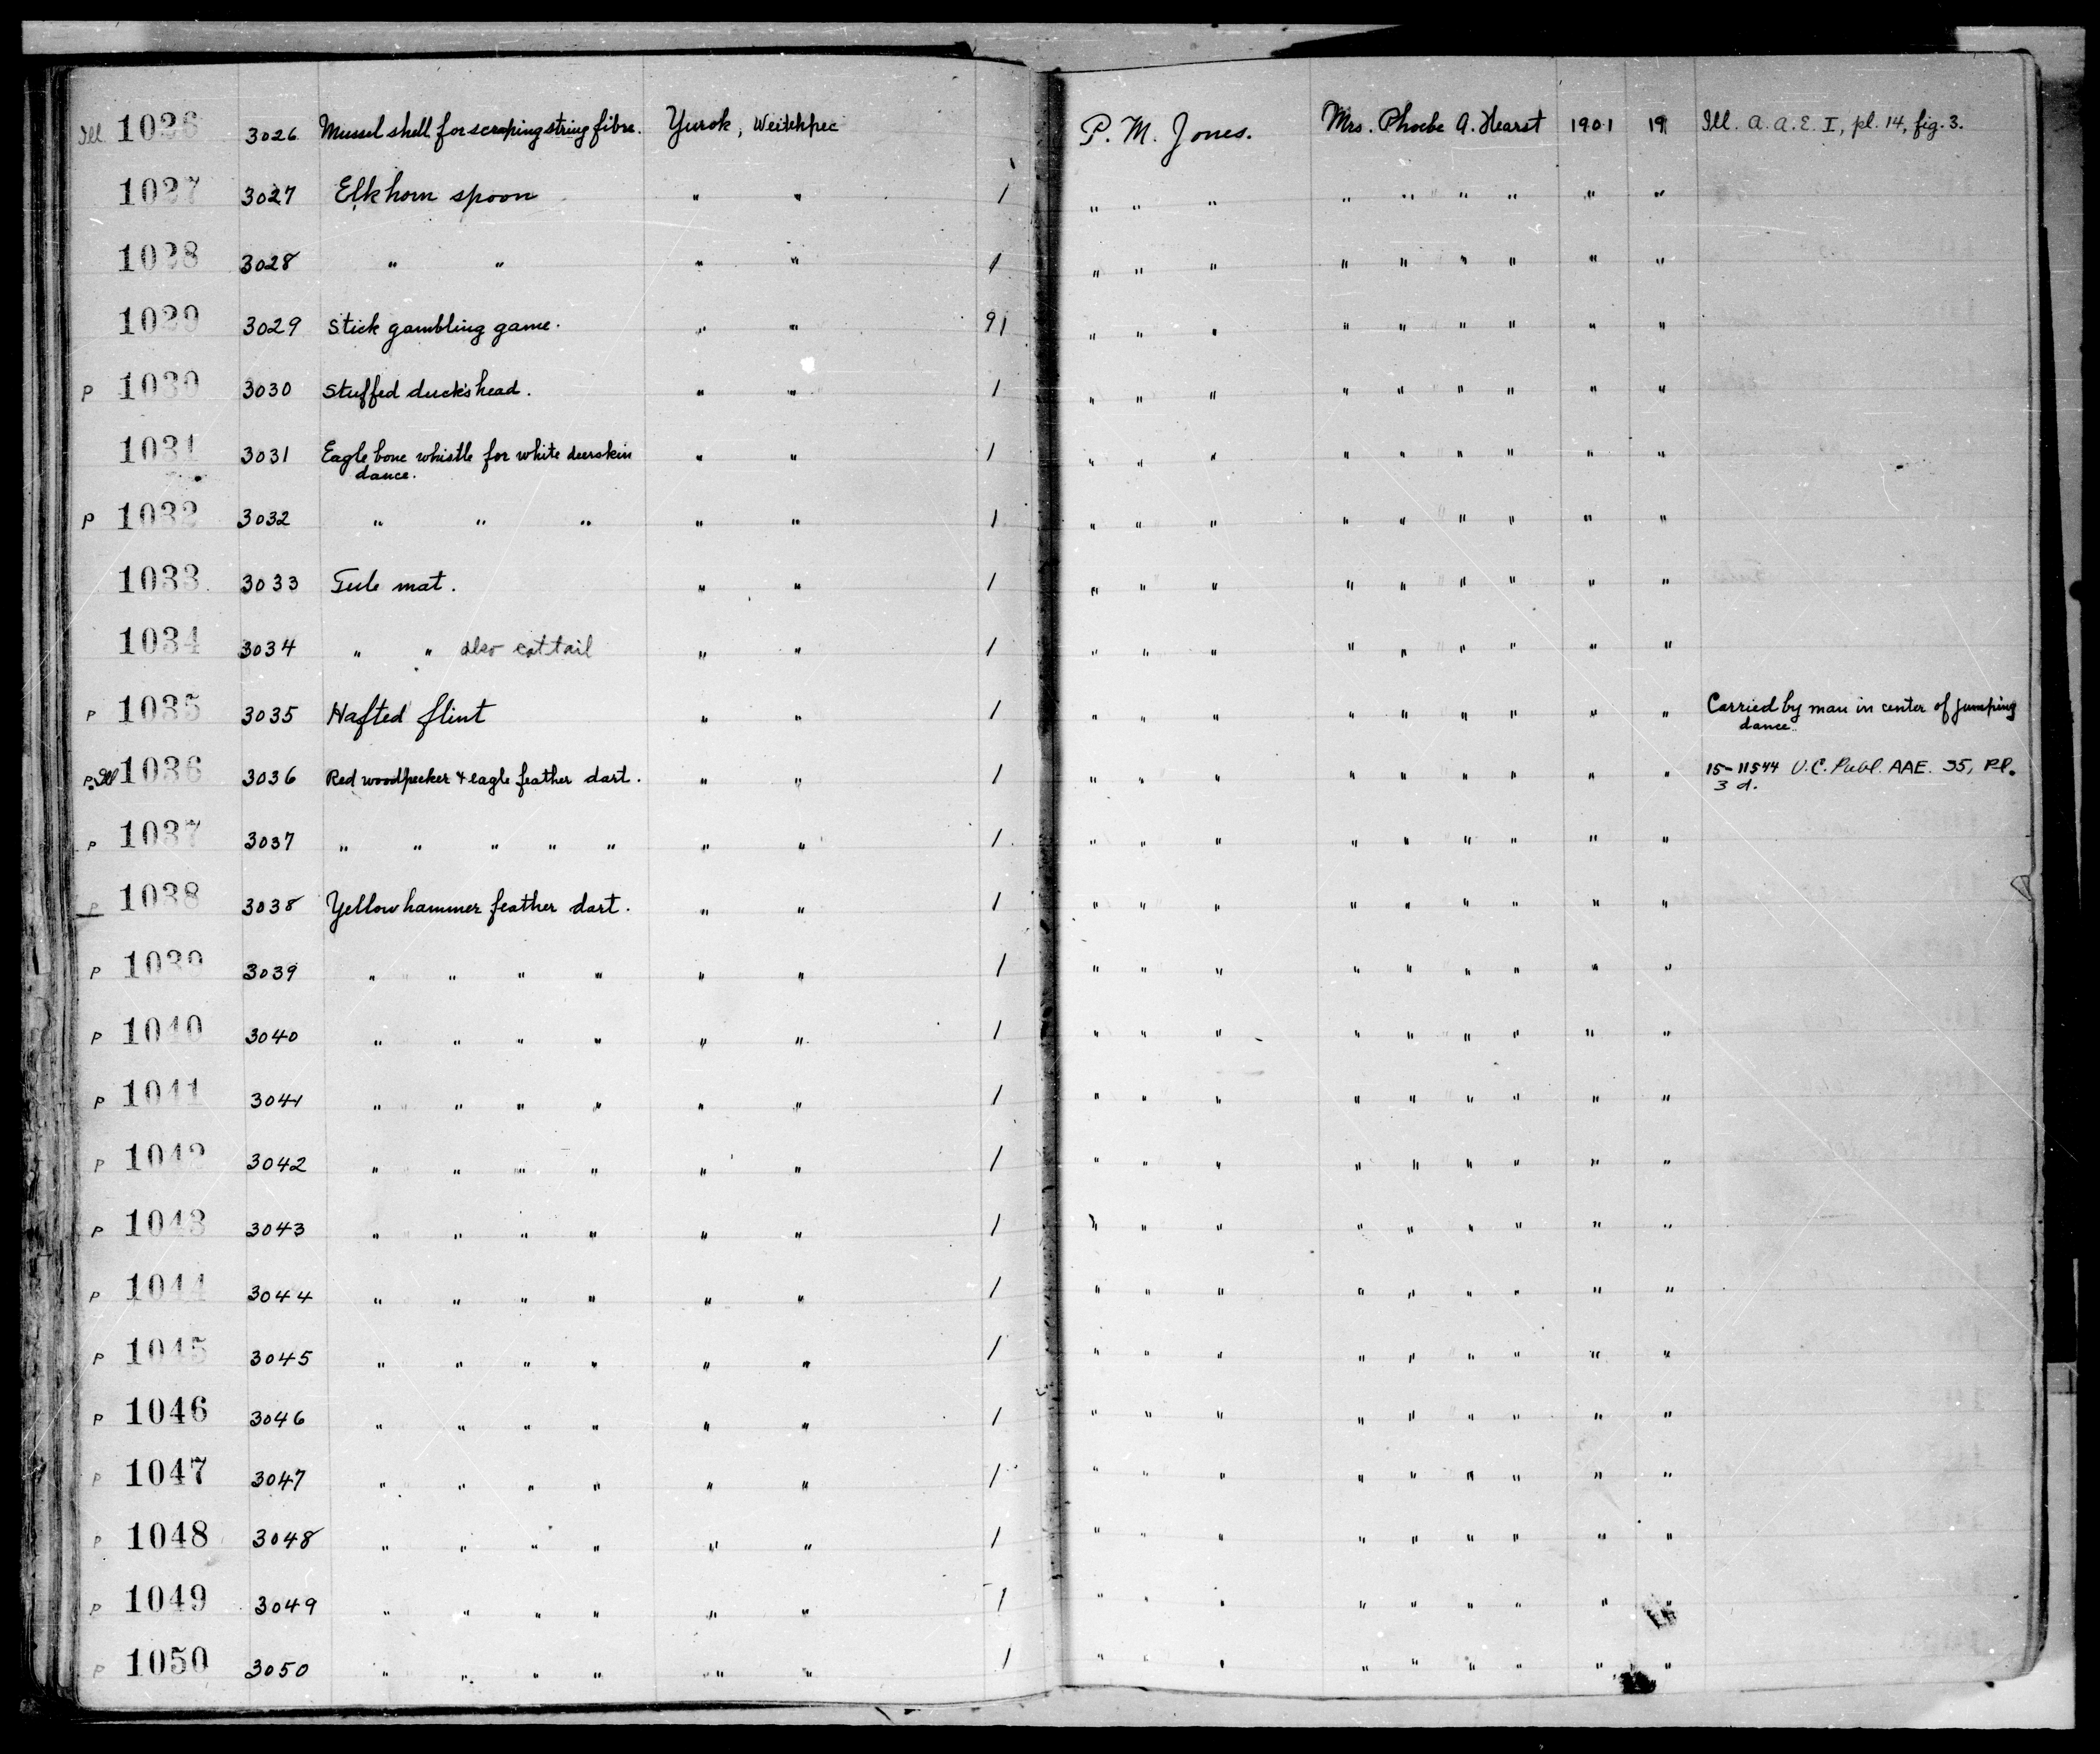 Ill 1026 3026 Mussel shell for scraping string fibre. Yurok, Weitchpec P. M. Jones. Mrs. Phoebe A. Hearst 1901 19 Ill. A. A. E. I, pl. 14, fig. 3.
1027 3027 Elkhorn spoon " " 1 " " " " " " " " "
1028 3028 " " " " 1 " " " " " " " " "
1029 3029 Stick gambling game. " " 91 " " " " " " " " "
P 1030 3030 Stuffed duck's head. " " 1 " " " " " " " " "
1031 3031 Eagle bone whistle for white deerskin " " 1 " " " " " " " " "
dance.
P 1032 3032 " " " " " 1 " " " " " " " " "
1033 3033 Tule mat. " " 1 " " " " " " " " "
1034 3034 " " also cattail " " 1 " " " " " " " " "
P 1035 3035 Hafted flint " " 1 " " " " " " " " " Carried by man in center of jumping
dance.
P. Ill 1036 3036 Red woodpecker & eagle feather dart. " " 1 " " " " " " " " " 15-11544 U.C. Publ. AAE. 35, Pl.
3 d.
P 1037 3037 " " " " " " " 1 " " " " " " " " "
P 1038 3038 Yellowhammer feather dart. " " 1 " " " " " " " " "
P 1039 3039 " " " " " " 1 " " " " " " " " "
P 1040 3040 " " " " " " 1 " " " " " " " " "
P 1041 3041 " " " " " " 1 " " " " " " " " "
P 1042 3042 " " " " " " 1 " " " " " " " " "
P 1043 3043 " " " " " " 1 " " " " " " " " "
P 1044 3044 " " " " " " 1 " " " " " " " " "
P 1045 3045 " " " " " " 1 " " " " " " " " "
P 1046 3046 " " " " " " 1 " " " " " " " " "
P 1047 3047 " " " " " " 1 " " " " " " " " "
P 1048 3048 " " " " " " 1 " " " " " " " " "
P 1049 3049 " " " " " " 1 " " " " " " " " "
P 1050 3050 " " " " " " 1 " " " " " " " " "